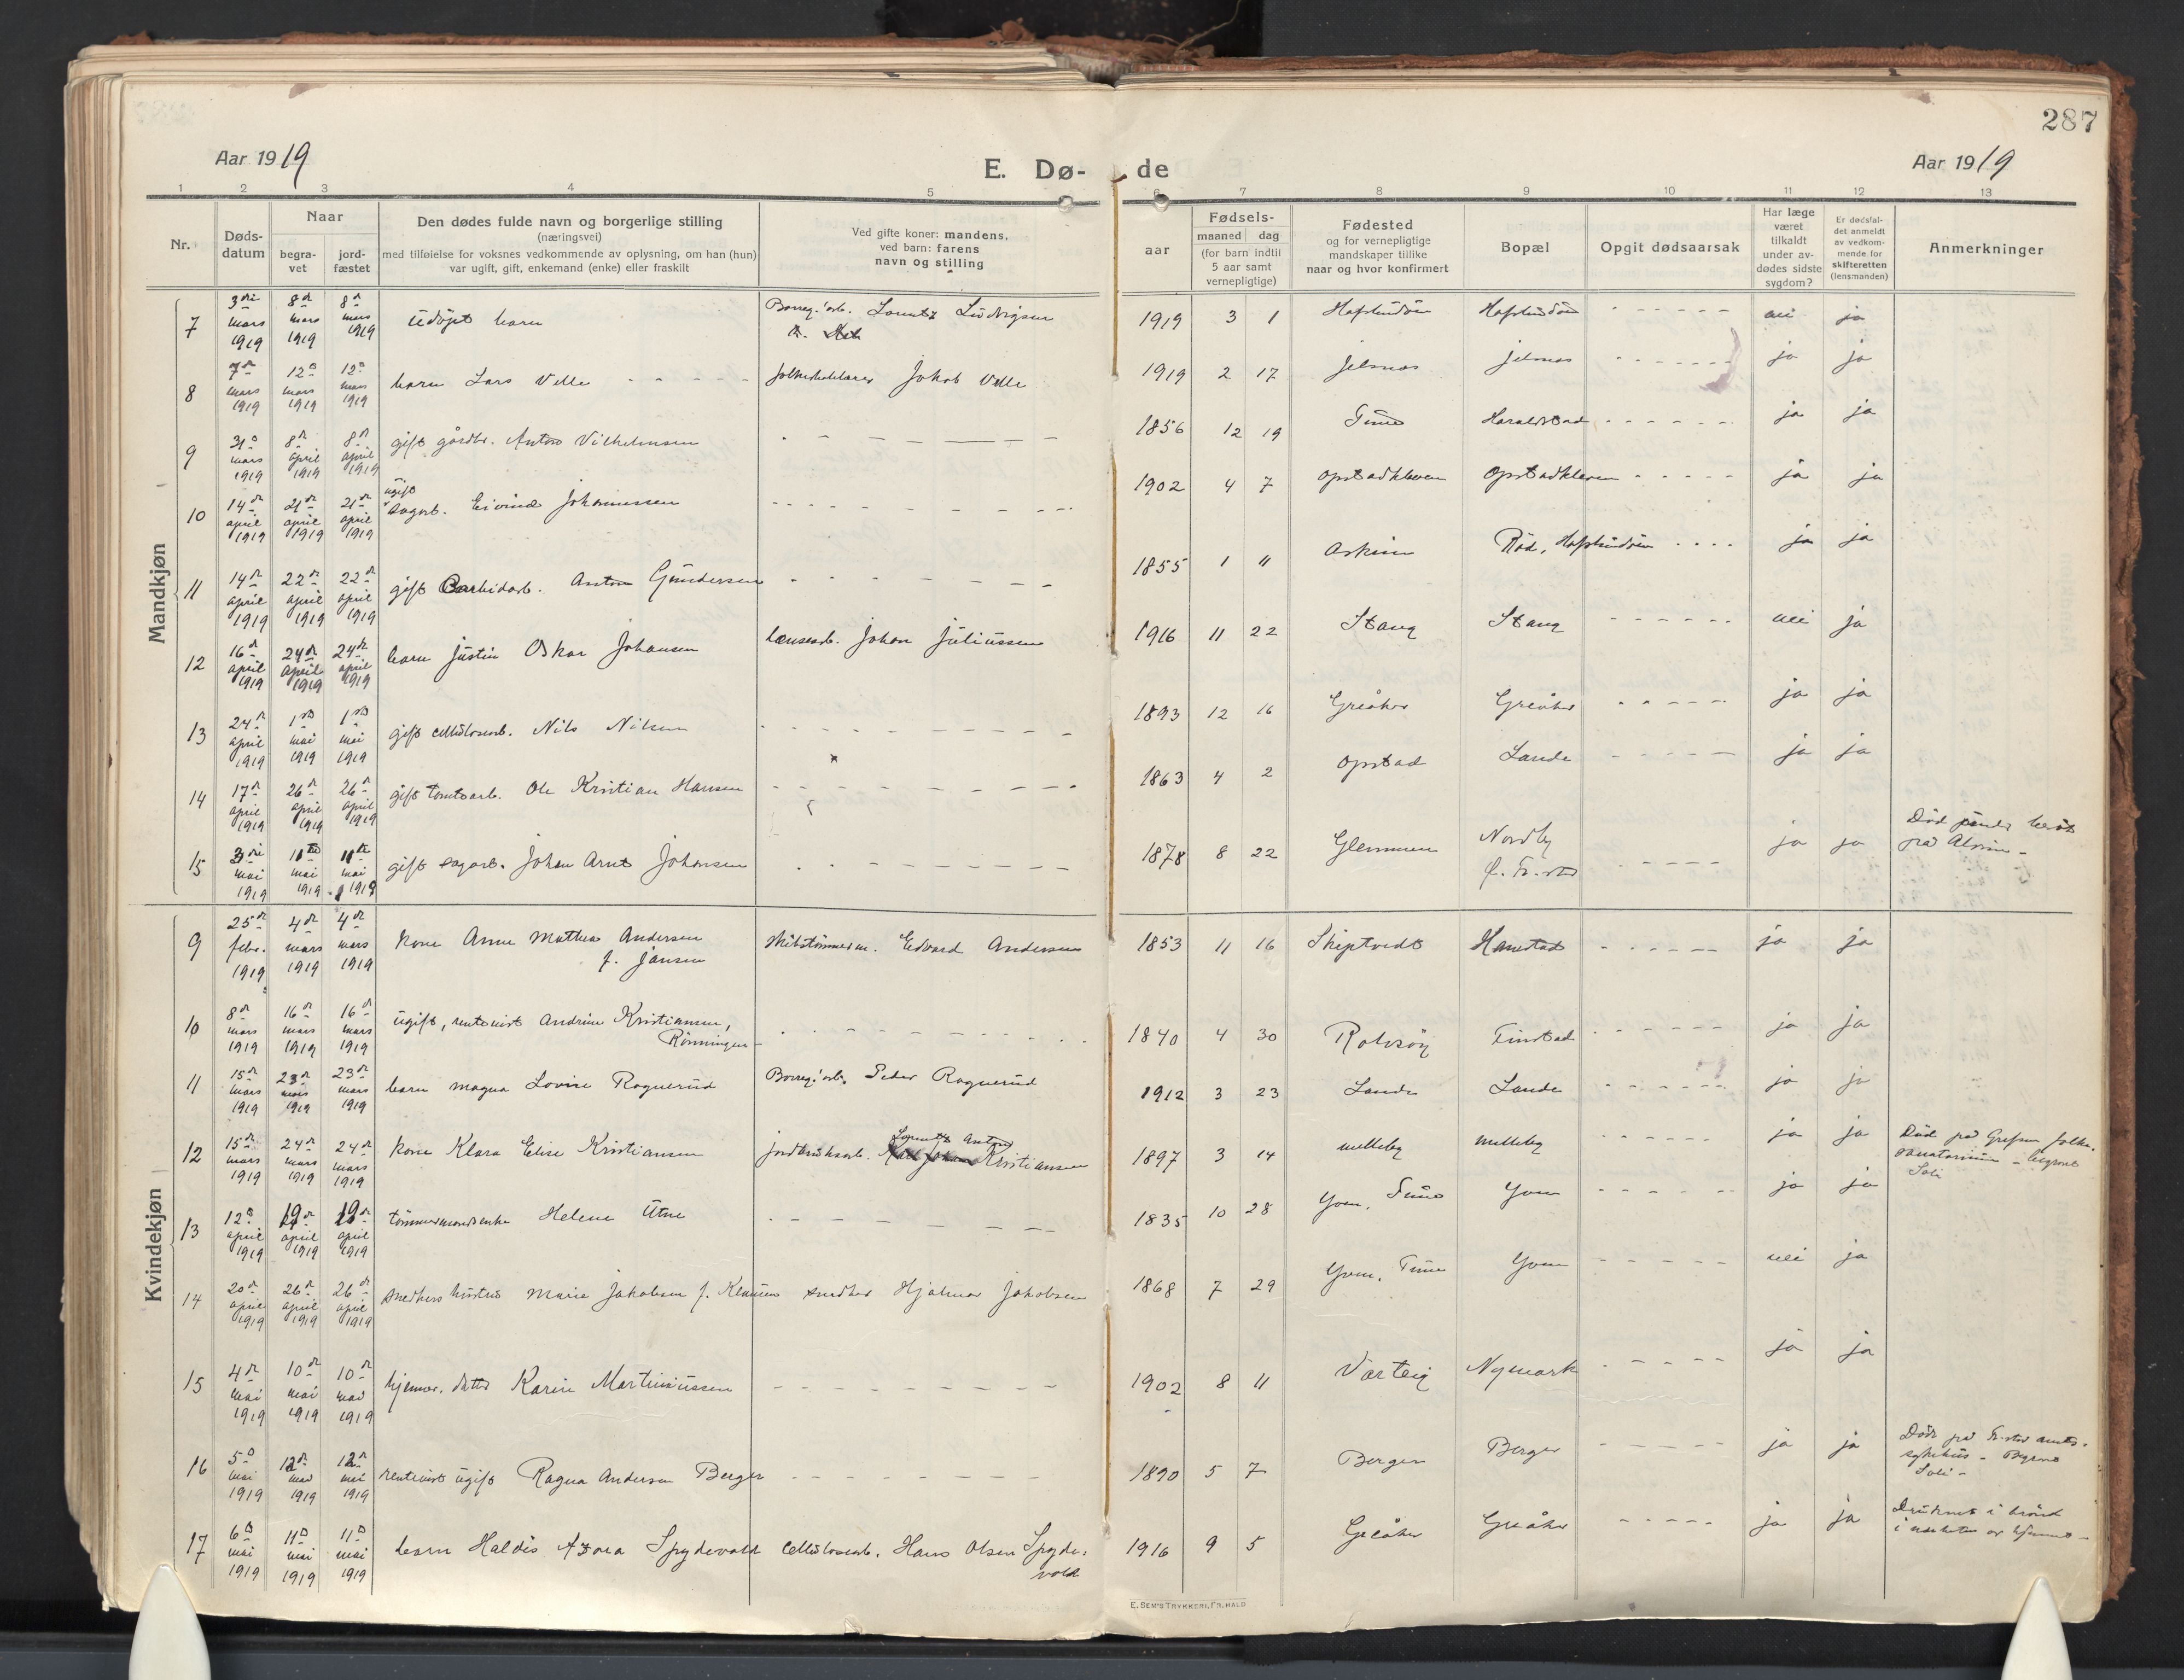 287
Aar 1919
E. Dø-
de
Aar 1919
1 2 3 4 5 6 7 8 9 10 11 12 13
Nr.
Døds-
datum
Naar
begra-
vet
jord-
fæstet
Den dødes fulde navn og borgerlige stilling
(næringsvei)
med tilføielse for voksnes vedkommende av oplysning, om han (hun)
var ugift, gift, enkemand (enke) eller fraskilt
Ved gifte koner: mandens,
ved barn: farens
navn og stilling
aar
Fødsels-
maaned dag
(for barn indtil
5 aar samt
vernepligtige)
Fødested
og for vernepligtige
mandskaper tillike
naar og hvor konfirmert
Bopæl
Opgit dødsaarsak
Har læge
været
tilkaldt
under av-
dødes sidste
sygdom?
Er dødsfal-
det anmeldt
av vedkom-
mende for
skifteretten
(lensmanden)
Anmerkninger
Mandkjøn
7 3die mars 1919 8de mars 1919 8de mars 1919 udøpt barn Borreg.arb. Lorentz Ludvigsen 1919 3 1 Hafslundsøen Hafslundsøen nei ja
8 7de mars 1919 12te mars 1919 12te mars 1919 barn Lars Velle folkeskolelærer Jakob Velle 1919 2 17 Jelsnes Jelsnes ja ja
9 31te mars 1919 8de april 1919 8de april 1919 gift gårdbr. Anton Vilhelmsen 1856 12 19 Tune Haraldstad ja ja
10 14de april 1919 21de april 1919 21de april 1919 ugift sagarb. Eivind Johannessen 1902 4 7 Opstadkleven Opstadkleven ja ja
11 14de april 1919 22de april 1919 22de april 1919 gift Carbidarb. Anton Gundersen 1855 1 11 Askim Råd, Hafslundsøen ja ja
12 16de april 1919 24de april 1919 24de april 1919 barn Justin Oskar Johansen lænsearb. Johan Juliussen 1916 11 22 Stang Stang nei ja
13 24de april 1919 1ste mai 1919 1ste mai 1919 gift cellulosearb. Nils Nilsen 1893 12 16 Greåker Greåker ja ja
14 17de april 1919 26de april 1919 26de april 1919 gift tomtearb. Ole Kristian Hansen 1863 4 2 Opstad Lande ja ja
15 3die mai 1919 11te mai 1919 11te mai 1919 gift sagarb. Johan Arnt Johansen 1878 8 22 Glemmen Nordby Ø. Fr.stad ja ja Død
Kvindekjøn
9 25de febr. 1919 4de mars 1919 4de mars 1919 kone Anne Mathea Andersen f. Jansen skibstømmerm. Edvard Andersen 1853 11 16 Skiptvedt Hanestad ja ja
10 8de mars 1919 16de mars 1919 16de mars 1919 ugift, rentenist Andrine Kristiansen, Rönningen 1840 4 30 Rolvsøy Finstad ja ja
11 15de mars 1919 23de mars 1919 23de mars 1919 barn Magna Lovise Ragnerud Borreg.arb. Peder Ragnerud 1912 3 23 Lande Lande ja ja
12 15de mars 1919 24de mars 1919 24de mars 1919 kone Klara Elise Kristiansen jordbruksarb. Lorentz Anton Kristiansen 1897 3 14 melleby melleby ja ja Död på Grefsen folke-
sanatorium
13 12te april 1919 19de april 1919 19de april 1919 tømmermandsenke Helene Utne 1835 10 28 Yven, Tune Yven ja ja
14 20de april 1919 26de april 1919 26de april 1919 snedkers hustru Marie Jakobsen f. Klausen snedker Hjalmar Jakobsen 1868 7 29 Yven, Tune Yven nei ja
15 4de mai 1919 10de mai 1919 10de mai 1919 hjemmev. datter Karin Martiniussen 1902 8 11 Varteig Nymark ja ja
16 5te mai 1919 12de mai 1919 12de mai 1919 rentenist ugift Ragna Andersen Berger 1890 5 7 Berger Berger ja ja Død på Fr.stad amts-
sykehus
17 6te mai 1919 11te mai 1919 11te mai 1919 barn Haldis Azora Spydevold Cellulosearb. Hans Olsen Spyde-
vold 1916 9 5 Greåker Greåker ja ja Druknet i brønd
i nærheten av hjemmet
E. SEM'S TRYKKERI, FR.HALD